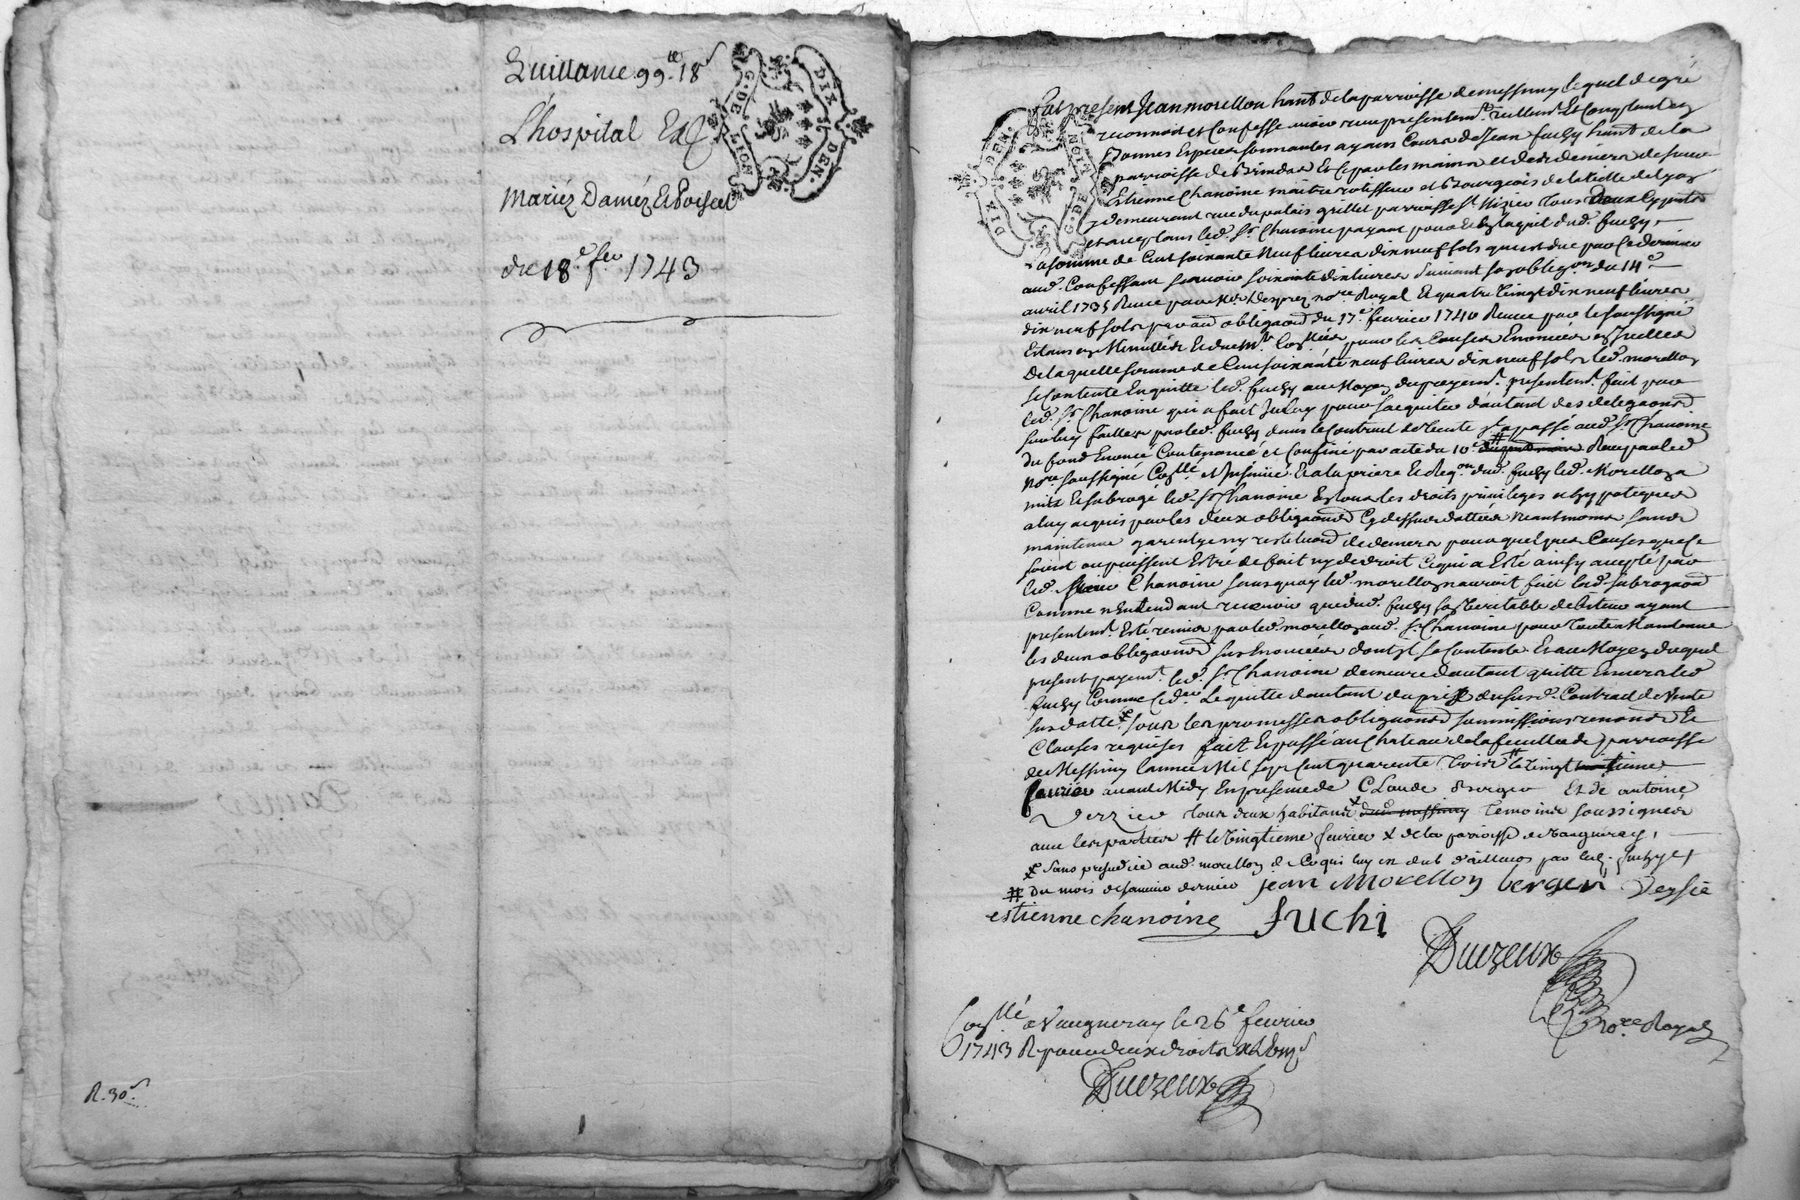 Quittance 99 tt 18 s
L'hospital Ed
Mariéz Daméz Et
du 18e feu 1743
G. DE LION
DIX DEN.
R. 30 s
DIX DEN.
G. DE LION
fut present Jean morellon habt de la parroisse de messimy lequel de gré
reconnoit et Confesse avoir receu presentemt reellemt Et Comptant en
Bonnes Especes sonnantes ayans Cours de Jean fuchy habt de la
parroisse de Brindas Et Ce par les mains et des deniers de sieur
Estienne Chanoine maitre rotisseur et Bourgeois de la ville de Lyon
y demeurant rue du palais grillet parroisse St Nizier tous Deux Cy presents
et acceptans led. Sr Chanoine payant pour et en l'aquit dud. fuchy
La somme de Cent soixante Neuf livres dix neuf sols qui est due par Ce dernier
aud. Confessant sçavoir soixante dix livres suivant son obligon du 14e
avril 1735 Receue par Me Desprez nore Royal Et quatre vingt dix neuf livres
dix neuf sols par aud obligaond du 17e fevrier 1740 Receue par le soussigné
Estans en Minutte Et duemt Conllées pour les Causes Enoncées en Icelles
De laquelle somme de Cent soixante neuf livres dix neuf sols led. morellon
se Contente En quitte led. fuchy au Moyen du payemt presentemt fait par
led. Sr Chanoine qui a fait Iceluy pour s'acquiter d'autant des delegaond
sur luy faittes par led. fuchy dans le Contract de vente qu'il a passé aud. Sr Chanoine
du fond Enoncé Contenancé et Confiné par acte du 10e # Receu par led
Nore soussigné Conllé et Insinué. Et a la priere Et Reqon dud. fuchy led. Morellon a
mis Et subrogé led. Sr Chanoine En tous les droits privileges et hypoteques
a luy acquis par les deux obligaond Cy dessus dattées Neantmoins sans
maintenue garentye ny restituond de deniers pour quelques Causes que Ce
soient ou puissent Estre de fait ny de droit Ce qui a Esté ainsy accepté par
led. Sieur Chanoine sans quoy led. morellon n'auroit fait lad. subrogaond
Comme n'Entendant recevoir que dud. fuchy son veritable debiteur ayant
presentemt Esté remis par led. morellon aud. Sr Chanoine pour toutte Maintenue
les deux obligaond sus Enoncées dont il se Contente Et au Moyen duquel
present payemt led. Sr Chanoine demeure d'autant quitte Envers led
fuchy Comme Ce dernier Le quitte d'autant du prix du susd. Contract de Vente
sus datté ⨳ sous les promesses obligaond summissions renonds Et
Clauses requises fait Et passé au Chateau de la feuillade parroisse
de Messimy l'année Mil sept Cent quarente trois # le vingt tieme
fevrier avant Midy En presence de Claude Berger Et de antoine
Verzier tous deux habitans x dud messimy temoins soussignés
avec les parties # le vingtieme fevrier x de la paroisse de Vaugneray,
⨳ sans prejudice aud. morellon de Ce qui luy est deub d'ailleurs par led. fuchy
# du mois de janvier dernier Jean Morellon berger Versié
estienne chanoine fuchi
Duezeux
nore Royal
Conllé a Vaugneray le 26e fevrier
1743 R pour deux droits
Duezeux